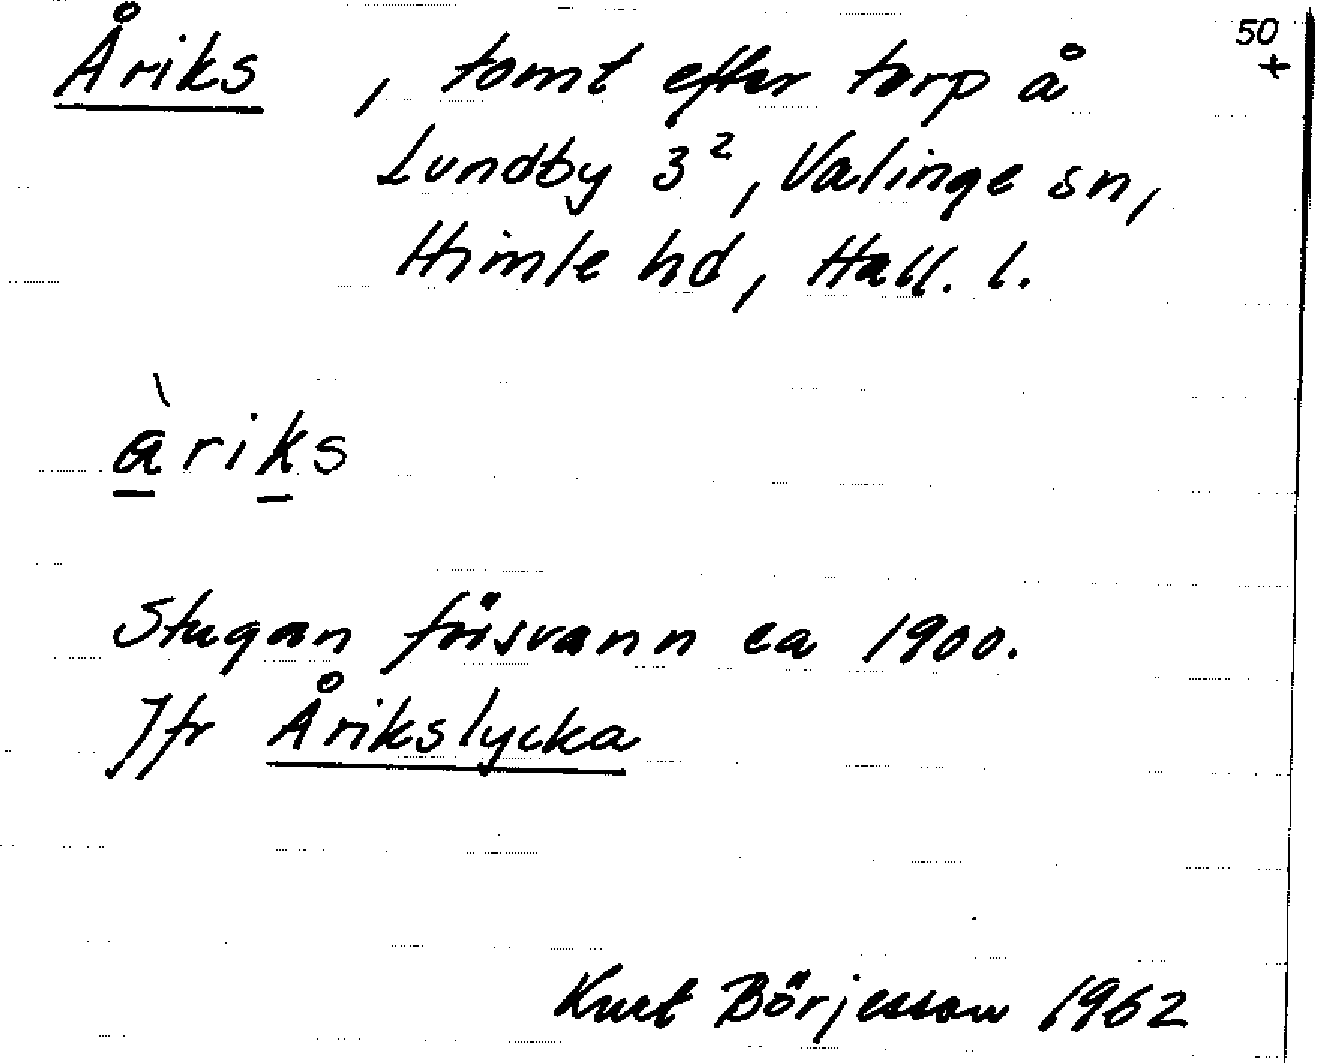 50
+
Åriks , tomt efter torp å
Lundby 3², Valinge sn,
Himle hd, Hall. l.
àriks
Stugan försvann ca 1900.
Jfr Årikslycka
Kurt Börjesson 1962